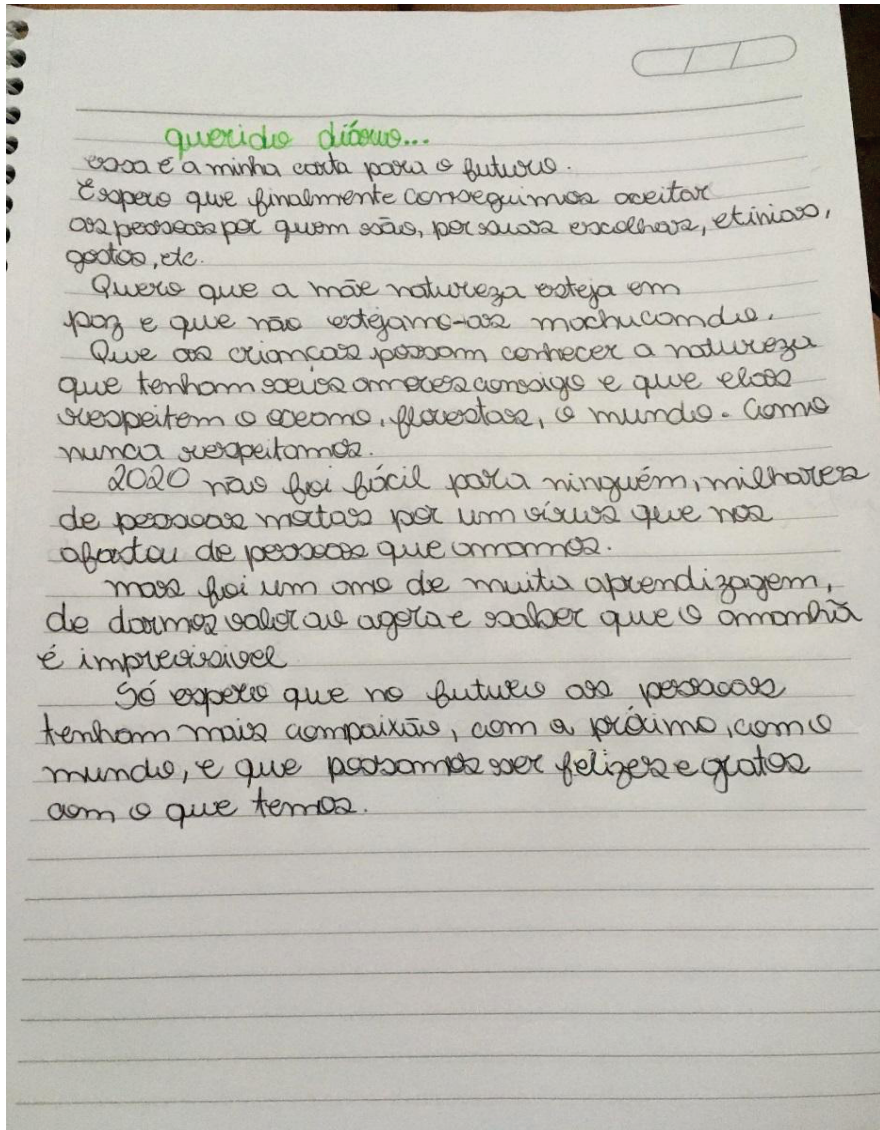 querido diário...
essa é a minha carta para o futuro.
Espero que finalmente conseguimos aceitar
as pessoas por quem são, por suas escolhas, etinias,
gostos, etc.
Quero que a mãe natureza esteja em
paz e que não estejamo-as machucando.
Que as crianças possam conhecer a natureza
que tenham seus amores consigo e que elas
respeitem o oceano, florestas, o mundo. Como
nunca respeitamos.
2020 não foi fácil para ninguém, milhares
de pessoas mortas por um vírus que nos
afastou de pessoas que amamos.
mas foi um ano de muita aprendizagem,
de darmos valor ao agora e saber que o amanhã
é imprevisivel
Só espero que no futuro as pessoas
tenham mais compaixão, com o próximo, com o
mundo, e que possamos ser felizes e gratos
com o que temos.